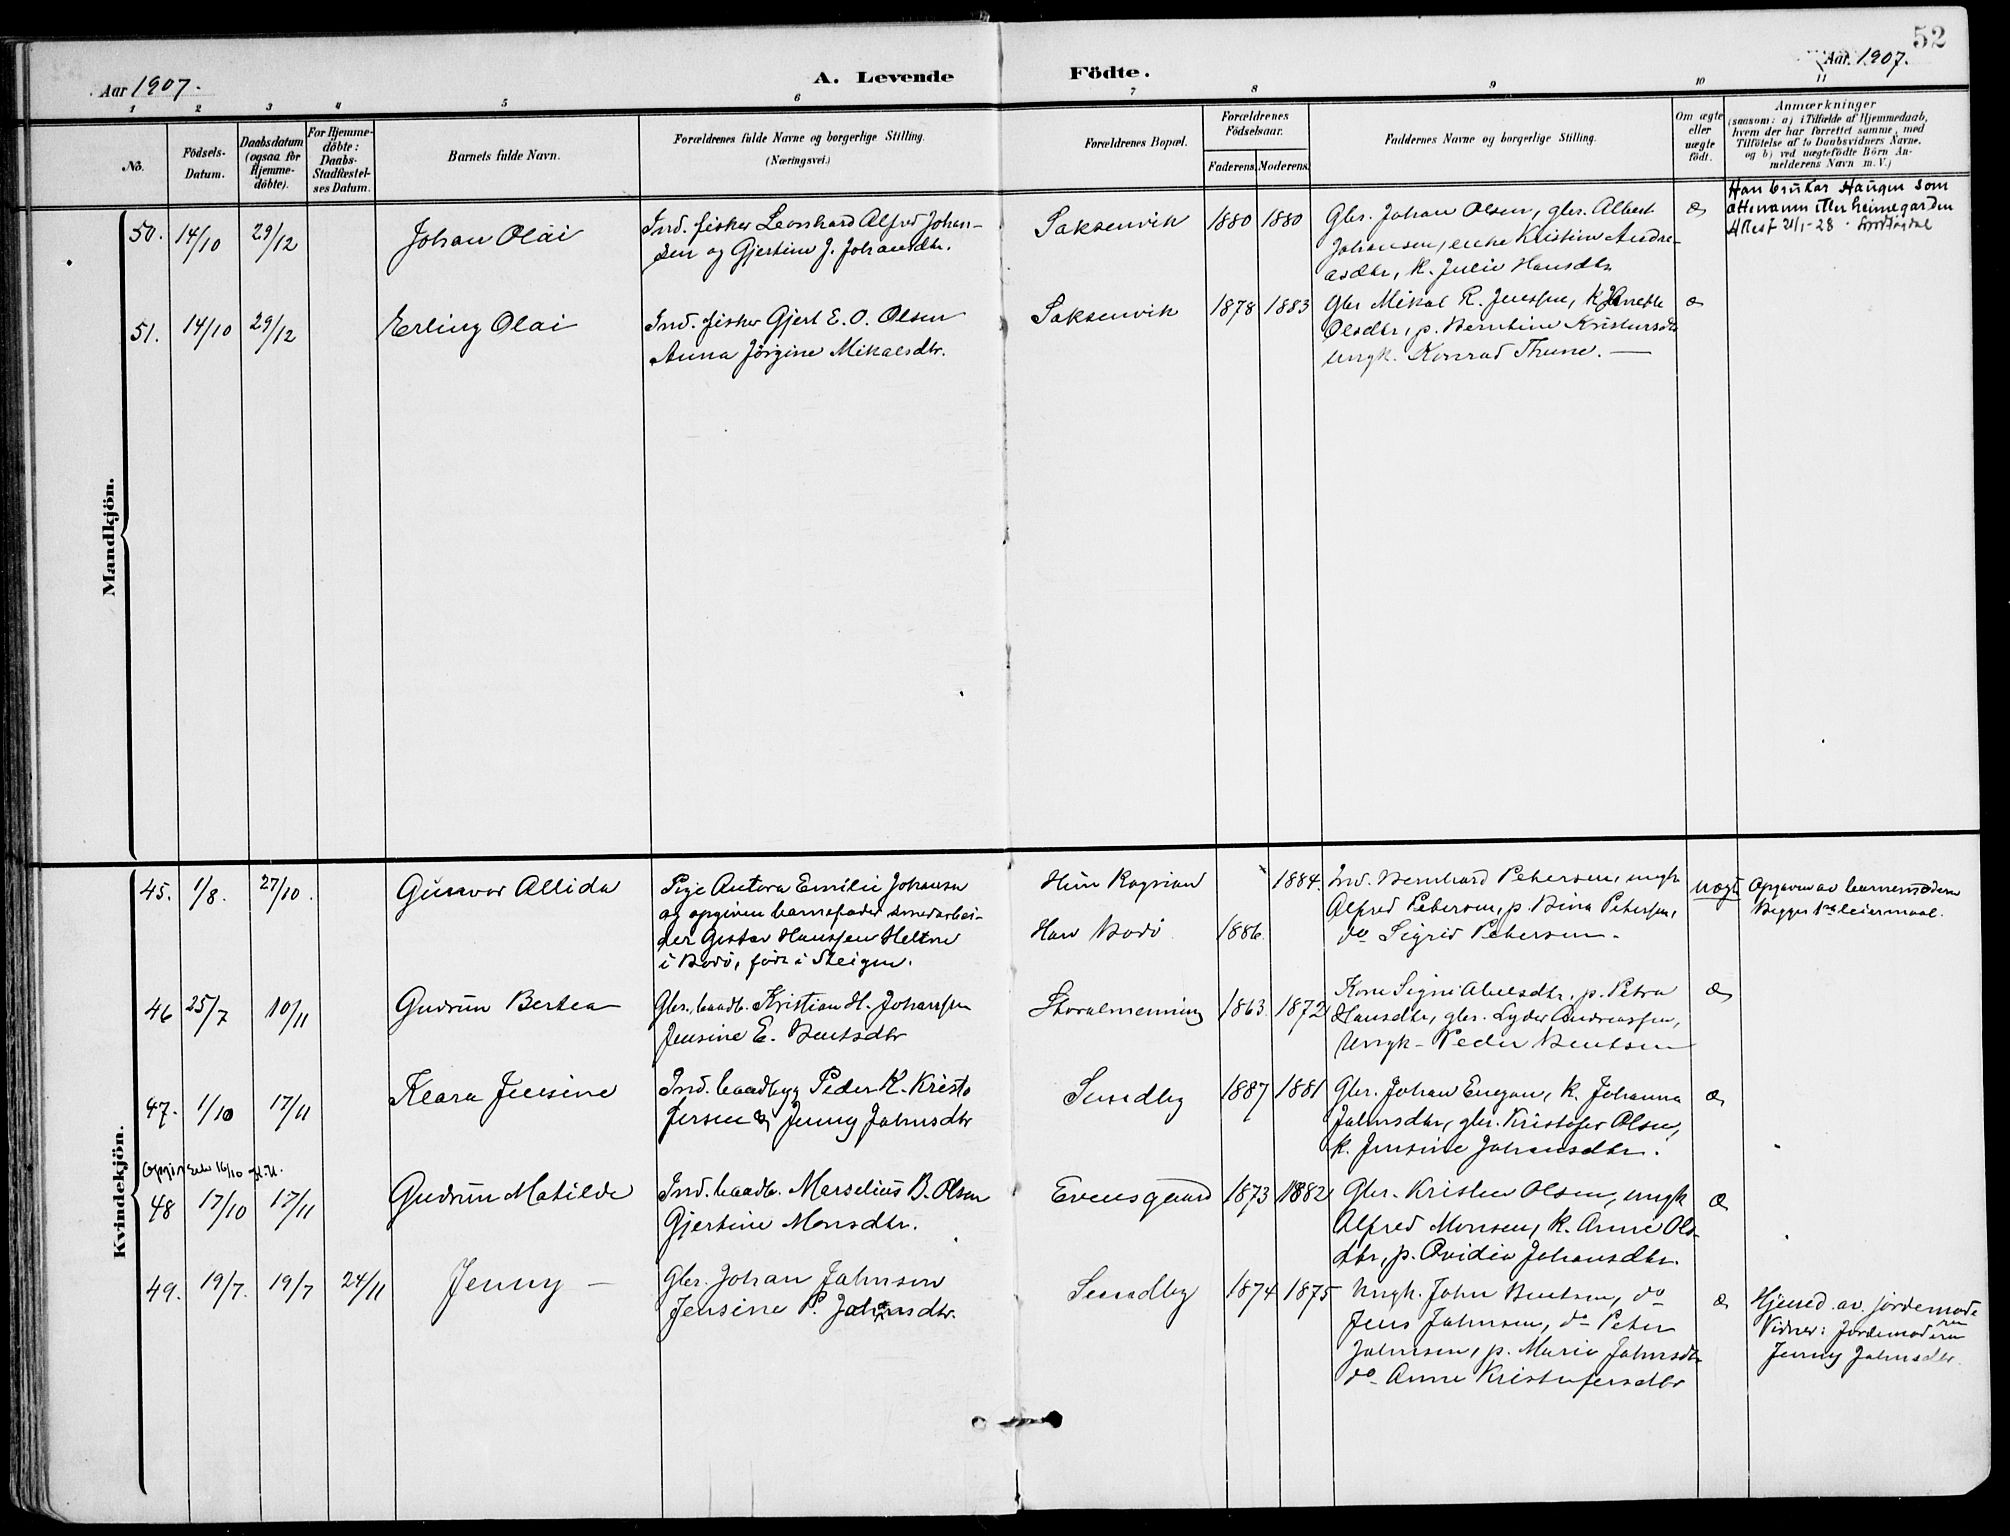 52
Aar 1907.
A. Levende
Födte.
Aar 1907.
1 2 3 4 5 6 7 8 9 10 11
No.
Födsels-
Datum.
Daabsdatum
(ogsaa for
Hjemme-
döbte).
For Hjemme-
döbte:
Daabs-
Stadfæstel-
ses Datum.
Barnets fulde Navn.
Forældrenes fulde Navne og borgerlige Stilling.
(Næringsvei.)
Forældrenes Bopæl.
Forældrenes
Födselsaar.
Faderens. Moderens.
Faddernes Navne og borgerlige Stilling.
Om ægte
eller
uægte
födt.
Anmærkninger
(saasom: a) i Tilfælde af Hjemmedaab,
hvem der har forrettet samme, med
Tilföielse af to Daabsvidners Navne,
og b) ved uægtefödte Börn An-
melderens Navn m. V.)
Mandkjön.
50. 14/10 29/12
Johan Olai
Ind. fisker Leonhard Alfred Johan-
sen og Gjertine J. Johansdtr.
Saksenvik
1880 1880
Gbr. Johan Olsen, gbr. Albert
Johansen, enke Kristine Andre-
asdtr, k. Julie Hansdtr
æ
Han brukar Haugen som
ættenamn etter heimegarden
Attest 21/1-28
51. 14/10 29/12
Erling Olai
Ind. fisker Gjert E. O. Olsen
Anna Jörgine Mikalsdtr.
Saksenvik
1878 1883
Gbr Mikal R. Jenssen, K. Anette
Olsdtr, p. Berntine
Ungk. Konrad Thune. —
æ
Kvindekjön.
45. 1/8. 27/10.
Gunvor Allida
Pige Antora Emilie Johansen
og opgiven barnefader
Hanssen
i Bodö, född i Steigen.
Hun Rognan
Han Bodö
1886. 1884.
Ind. Bernhard Petersen, ungk
Alfred Petersen, p. Bina Petersen,
do Sigrid Petersen.
uægte
Opgaven av barnemoderen
Begges 1ste leiermaal.
46 25/7 10/11
Gudrun Bertea
Gbr. baadb. Kristian H. Johanssen
Jensine E. Bentsdtr
Storalmenning
1863. 1872
Kone Signe Abelsdtr, p. Petra
Hansdtr, gbr. Lyder Andreassen,
Ungk. Peder Bentsen
æ
47. 1/10 17/11
Klara Jensine
Ind. baadbygg Peder K. Kristo
fersen & Jenny Jahnsdtr
Sundby
1887 1881
Gbr. Johan Evensen, k. Johanna
Jahnsdtr, gbr. Kristofer Olsen,
k. Jensine Johansdtr.
æ
16/10
48 17/10 17/11
Gudrun Matilde
Ind. baadb. Marselius B. Olsen
Gjertine Monsdtr.
Evensgaard
1873 1882
Gbr. Kristen Olsen, ungk
Alfred Monsen, k. Anne Ols-
dtr, p. Ovidia Johansdtr.
æ
49. 19/7. 19/7 24/11
Jenny —
Gbr. Johan Jahnsen
Jensine P. Johansdtr.
Sundby
1874 1875
Ungk. John Bentsen, do
Jens Jahnsen, do Peter
Jahnsen, p. Marie Jahnsdtr
do Anne Kristofersdtr
æ
Hjemmed. av jordemode
ren
Vidner: Jordemoderen
Jenny Jahnsdtr.